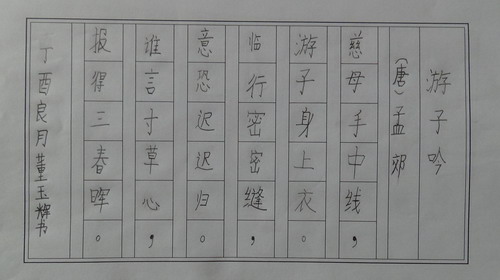 游子吟
(唐)孟郊
慈母手中线,
游子身上衣。
临行密密缝,
意恐迟迟归。
谁言寸草心,
报得三春晖。
丁酉良月董玉辉书